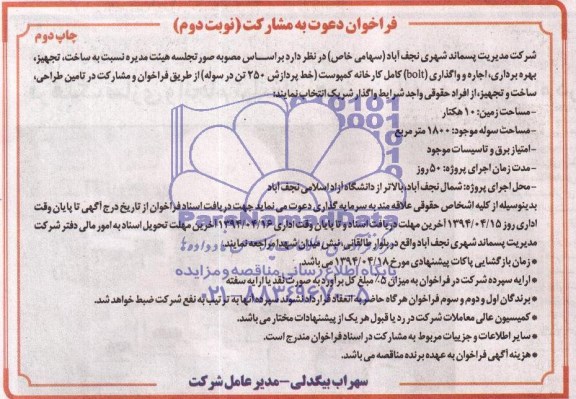 فراخوان دعوت به مشارکت (نوبت دوم)
چاپ دوم
شرکت مدیریت پسماند شهری نجف آباد (سهامی خاص) در نظر دارد براساس مصوبه صورتجلسه هیئت مدیره نسبت به ساخت، تجهیز،
بهره برداری، اجاره و واگذاری (bolt) کامل کارخانه کمپوست (خط پردازش ۲۵۰ تن در سوله) از طریق فراخوان و مشارکت در تامین طراحی،
ساخت و تجهیز، از افراد حقوقی واجد شرایط واگذار شریک انتخاب نمایند:
-مساحت زمین: ۱۰ هکتار
-مساحت سوله موجود: ۱۸۰۰ متر مربع
-امتیاز برق و تاسیسات موجود
-مدت زمان اجرای پروژه: ۵۰ روز
-محل اجرای پروژه: شمال نجف آباد، بالاتر از دانشگاه آزاد اسلامی نجف آباد
بدینوسیله از کلیه اشخاص حقوقی علاقه مند به سرمایه گذاری دعوت می نماید جهت دریافت اسناد فراخوان از تاریخ درج آگهی تا پایان وقت
اداری روز ۱۳۹۴/۰۴/۱۵ آخرین مهلت دریافت اسناد و تا پایان وقت اداری ۱۳۹۴/۰۴/۱۶ آخرین مهلت تحویل اسناد به امور مالی دفتر شرکت
مدیریت پسماند شهری نجف آباد واقع در بلوار طالقانی، نبش میدان شهدا مراجعه نمایند.
• زمان بازگشایی پاکات پیشنهادی مورخ ۱۳۹۴/۰۴/۱۸ می باشد.
• ارایه سپرده شرکت در فراخوان به میزان ۵٪ مبلغ کل برآورد به صورت نقد یا ارایه سفته
• برندگان اول و دوم و سوم فراخوان هرگاه حاضر به انعقاد قرارداد نشوند سپرده آنها به ترتیب به نفع شرکت ضبط خواهد شد.
• کمیسیون عالی معاملات شرکت در رد یا قبول هر یک از پیشنهادات مختار می باشد.
• سایر اطلاعات و جزییات مربوط به مشارکت در اسناد فراخوان مندرج است.
• هزینه آگهی فراخوان به عهده برنده مناقصه می باشد.
سهراب بیگدلی-مدیر عامل شرکت
ParaNamadData
پایگاه اطلاع رسانی مناقصه و مزایده